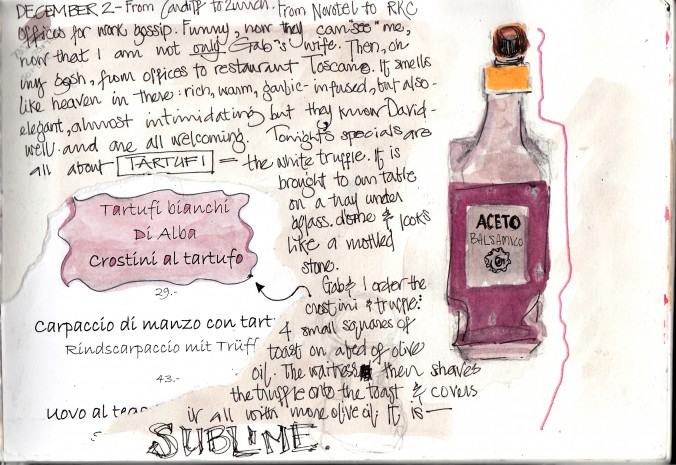 DECEMBER 2 - From Cardiff to Zurich. From Novotel to RKC
offices for work gossip. Funny, how they can "see" me,
now that I am not only Gab's wife. Then, oh
my gosh, from offices to restaurant Toscano. It smells
like heaven in there: rich, warm, garlic-infused, but also
elegant, almost intimidating but they know David
well and are all welcoming. Tonight's specials are
all about TARTUFI = the white truffle. It is
brought to our table
on a tray under
glass dome & looks
like a mottled
stone.
Gab & I order the
crostini & truffe:
4 small squares of
toast on a bed of olive
oil. The waitress then shaves
the truffle onto the toast & covers
it all with more olive oil. It is —
SUBLIME.
Tartufi bianchi
Di Alba
Crostini al tartufo
29.-
Carpaccio di manzo con tart
Rindscarpaccio mit Trüff
43.-
uovo al teg
ACETO
BALSAMICO